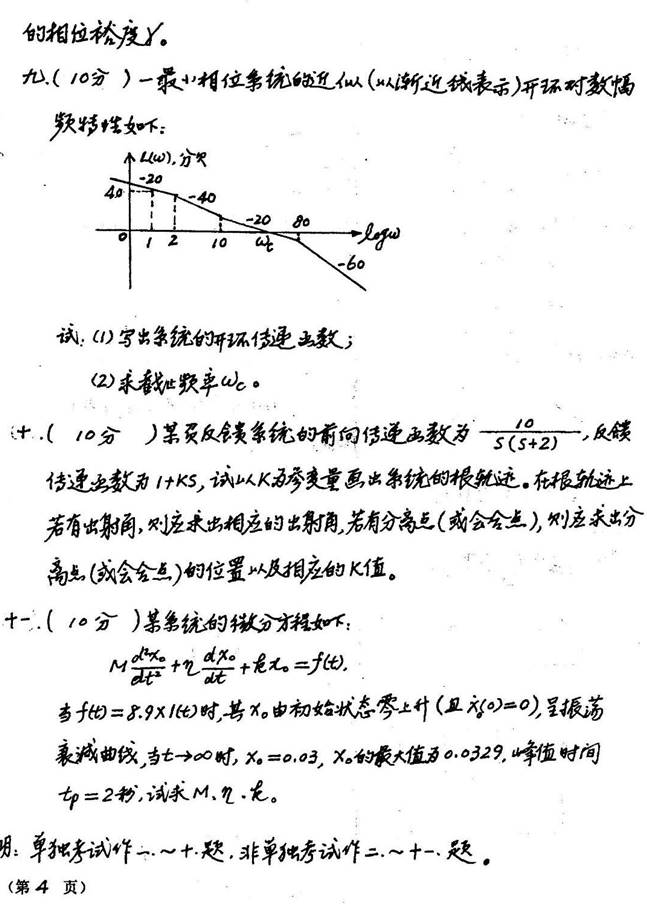 的相位裕度γ。
九.( 10分 ) 一最小相位系统的近似(以渐近线表示)开环对数幅
频特性如下:
L(ω),分贝
40
-20
-40
-20
80
-60
0 1 2 10 ωc logω
试: (1) 写出系统的开环传递函数;
(2) 求截止频率ωc。
十.( 10分 ) 某负反馈系统的前向传递函数为 10/S(S+2) , 反馈
传递函数为 1+KS, 试以K为参变量画出系统的根轨迹。在根轨迹上
若有出射角, 则应求出相应的出射角, 若有分离点(或会合点), 则应求出分
离点(或会合点)的位置以及相应的K值。
十一.( 10分 ) 某系统的微分方程如下:
M d²x₀/dt² + η dx₀/dt + kx₀ = f(t).
当f(t)=8.9×1(t)时, 其x₀由初始状态零上升(且ẋ₀(0)=0), 呈振荡
衰减曲线, 当t→∞时, x₀=0.03, x₀的最大值为0.0329, 峰值时间
tp=2秒, 试求M、η、k。
明: 单独考试作一.~十.题. 非单独考试作二.~十一.题。
(第 4 页)